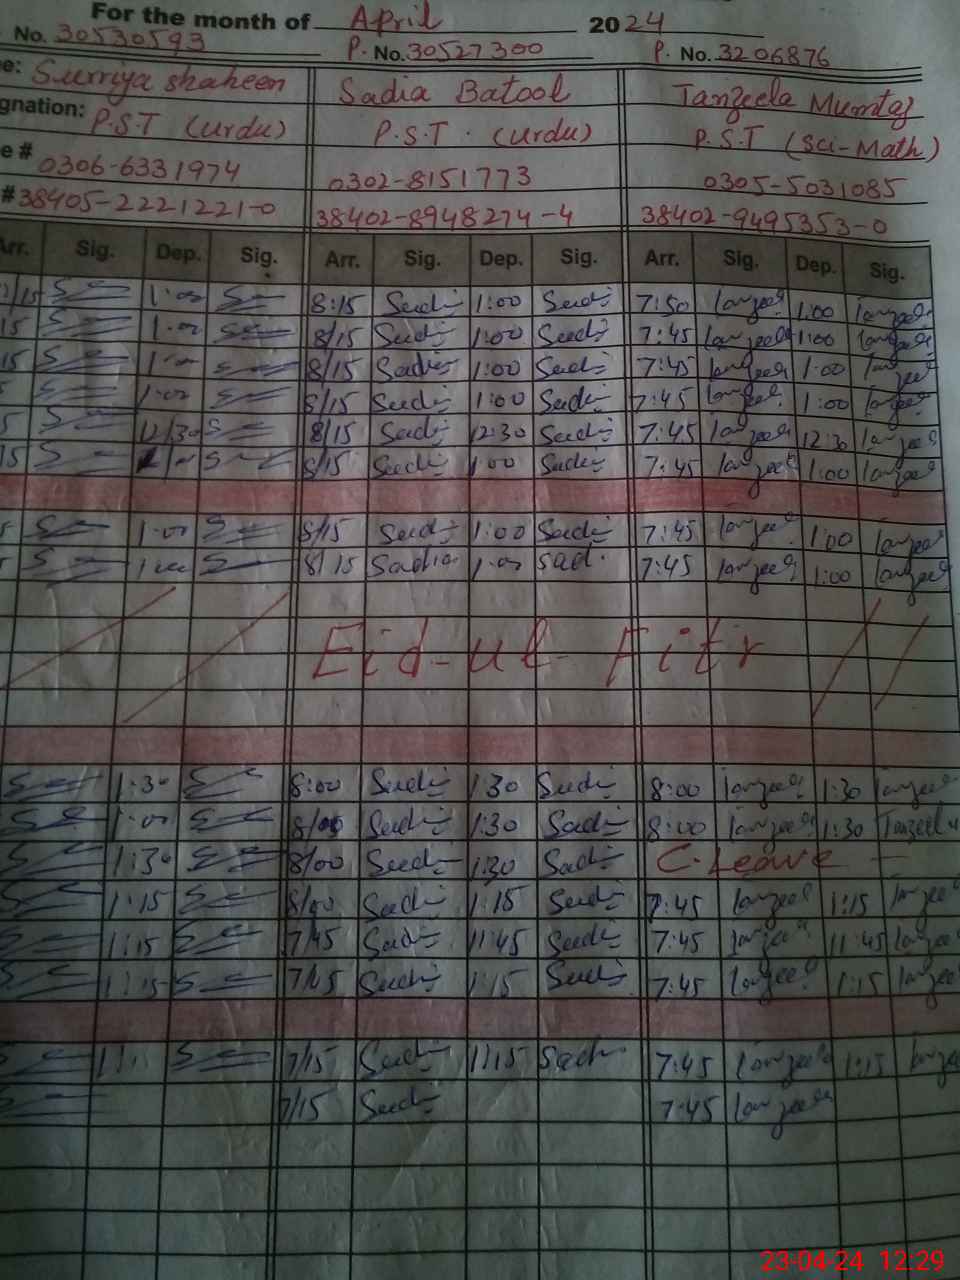 For the month of April 2024
No. 30530593 P. No. 30527300 P. No. 3206876
e: Surriya shaheen Sadia Batool Tanzeela Mumtaz
gnation: P.S.T (urdu) P.S.T. (urdu) P.S.T (Sci-Math)
e # 0306-6331974 0302-8151773 0305-5031085
# 38405-2221221-0 38402-8948274-4 38402-9495353-0
Arr. Sig. Dep. Sig. Arr. Sig. Dep. Sig. Arr. Sig. Dep. Sig.
1:00 8:15 Sadi 1:00 Sadi 7:50 Tanzeela 1:00 Tanzeela
15 1:00 8/15 Sadi 1:00 Sadi 7:45 Tanzeela 1:00 Tanzeela
15 1:00 8/15 Sadi 1:00 Sadi 7:45 Tanzeela 1:00
1:00 8/15 Sadi 1:00 Sadi 7:45 Tanzeela 1:00 Tanzeela
12/30 8/15 Sadi 12:30 Sadi 7:45 Tanzeela 12:30 Tanzeela
15 8/15 Sadi 1:00 Sadi 7:45 Tanzeela 1:00 Tanzeela
1:00 8/15 Sadi 1:00 Sadi 7:45 Tanzeela 1:00 Tanzeela
8/15 Sadia 1:00 Sad. 7:45 Tanzeela 1:00 Tanzeela
Eid-ul-Fitr
1:30 8:00 Sadi 1:30 Sadi 8:00 Tanzeela 1:30 Tanzeela
1:00 8/00 Sadi 1:30 Sadi 8:00 Tanzeela 1:30 Tanzeela
1:30 8/00 Sadi 1:30 Sadi C. Leave
1:15 8/00 Sadi 1:15 Sadi 7:45 Tanzeela 1:15
11:15 7/45 Sadi 11:45 Sadi 7:45 Tanzeela 11:45
1:15 7/45 Sadi 1:15 Sadi 7:45 Tanzeela 1:15
7/15 Sadi 1/15 Sadi 7:45 Tanzeela 1:15
7/15 Sadi 7:45 Tanzeela
23-04-24 12:29